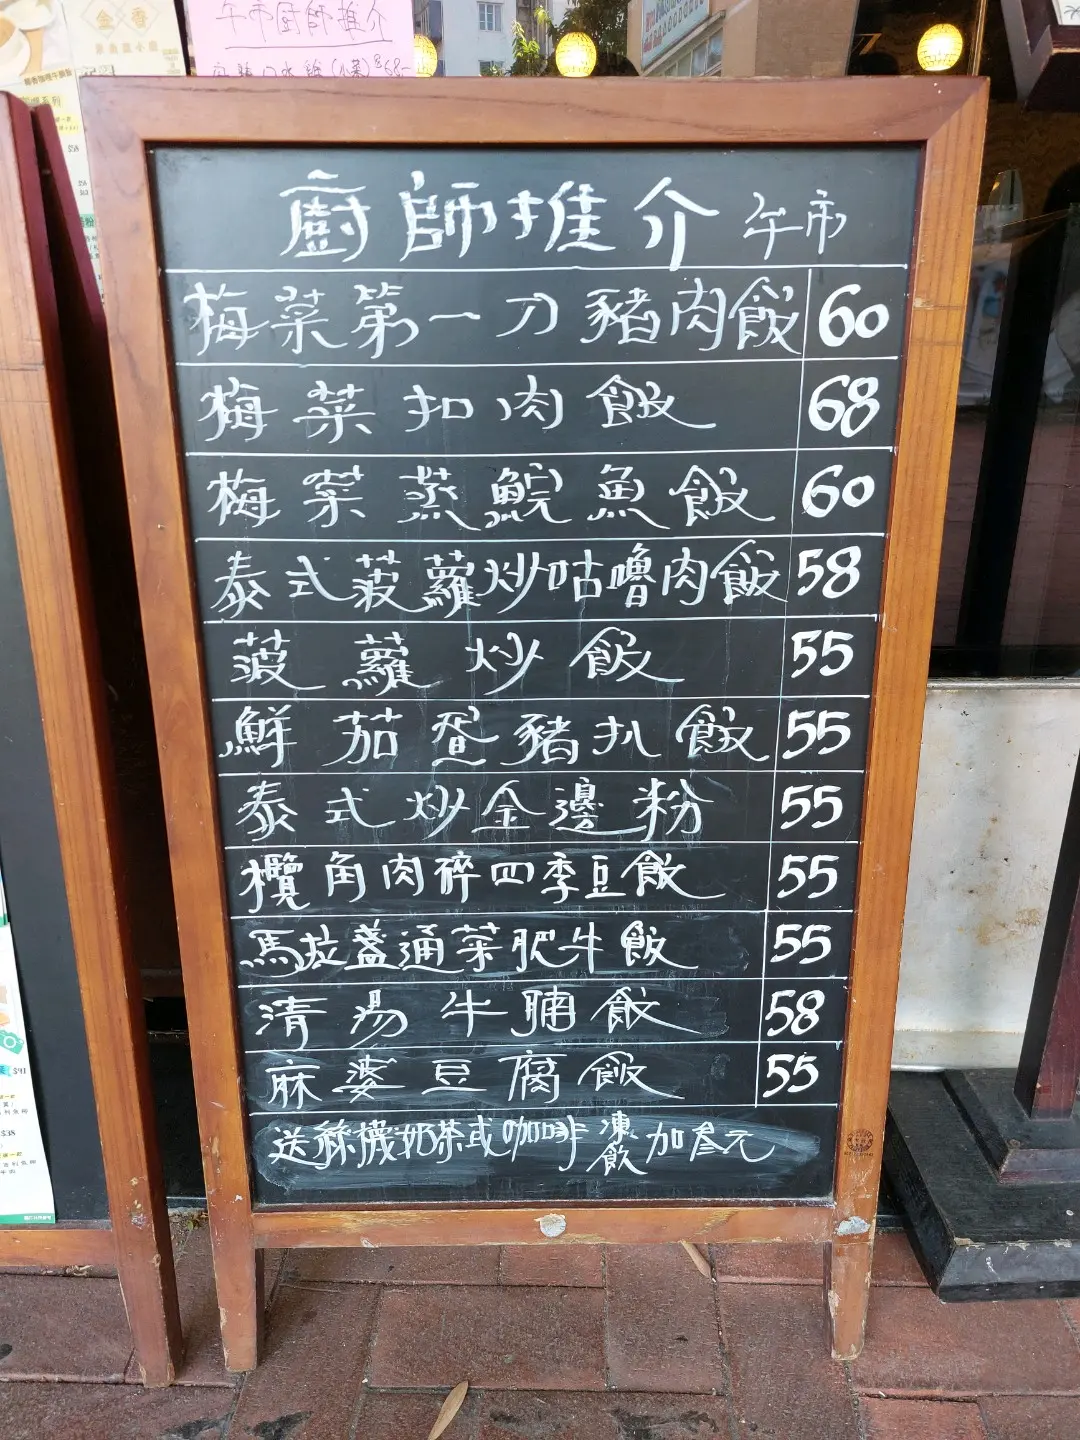 午市廚師推介
廚師推介 午市
梅菜第一刀豬肉飯 60
梅菜扣肉飯 68
梅菜蒸鯇魚飯 60
泰式菠蘿炒咕嚕肉飯 58
菠蘿炒飯 55
鮮茄蛋豬扒飯 55
泰式炒金邊粉 55
欖角肉碎四季豆飯 55
馬拉盞通菜肥牛飯 55
清湯牛腩飯 58
麻婆豆腐飯 55
送絲襪奶茶或咖啡 凍飲加叁元
$41
$38